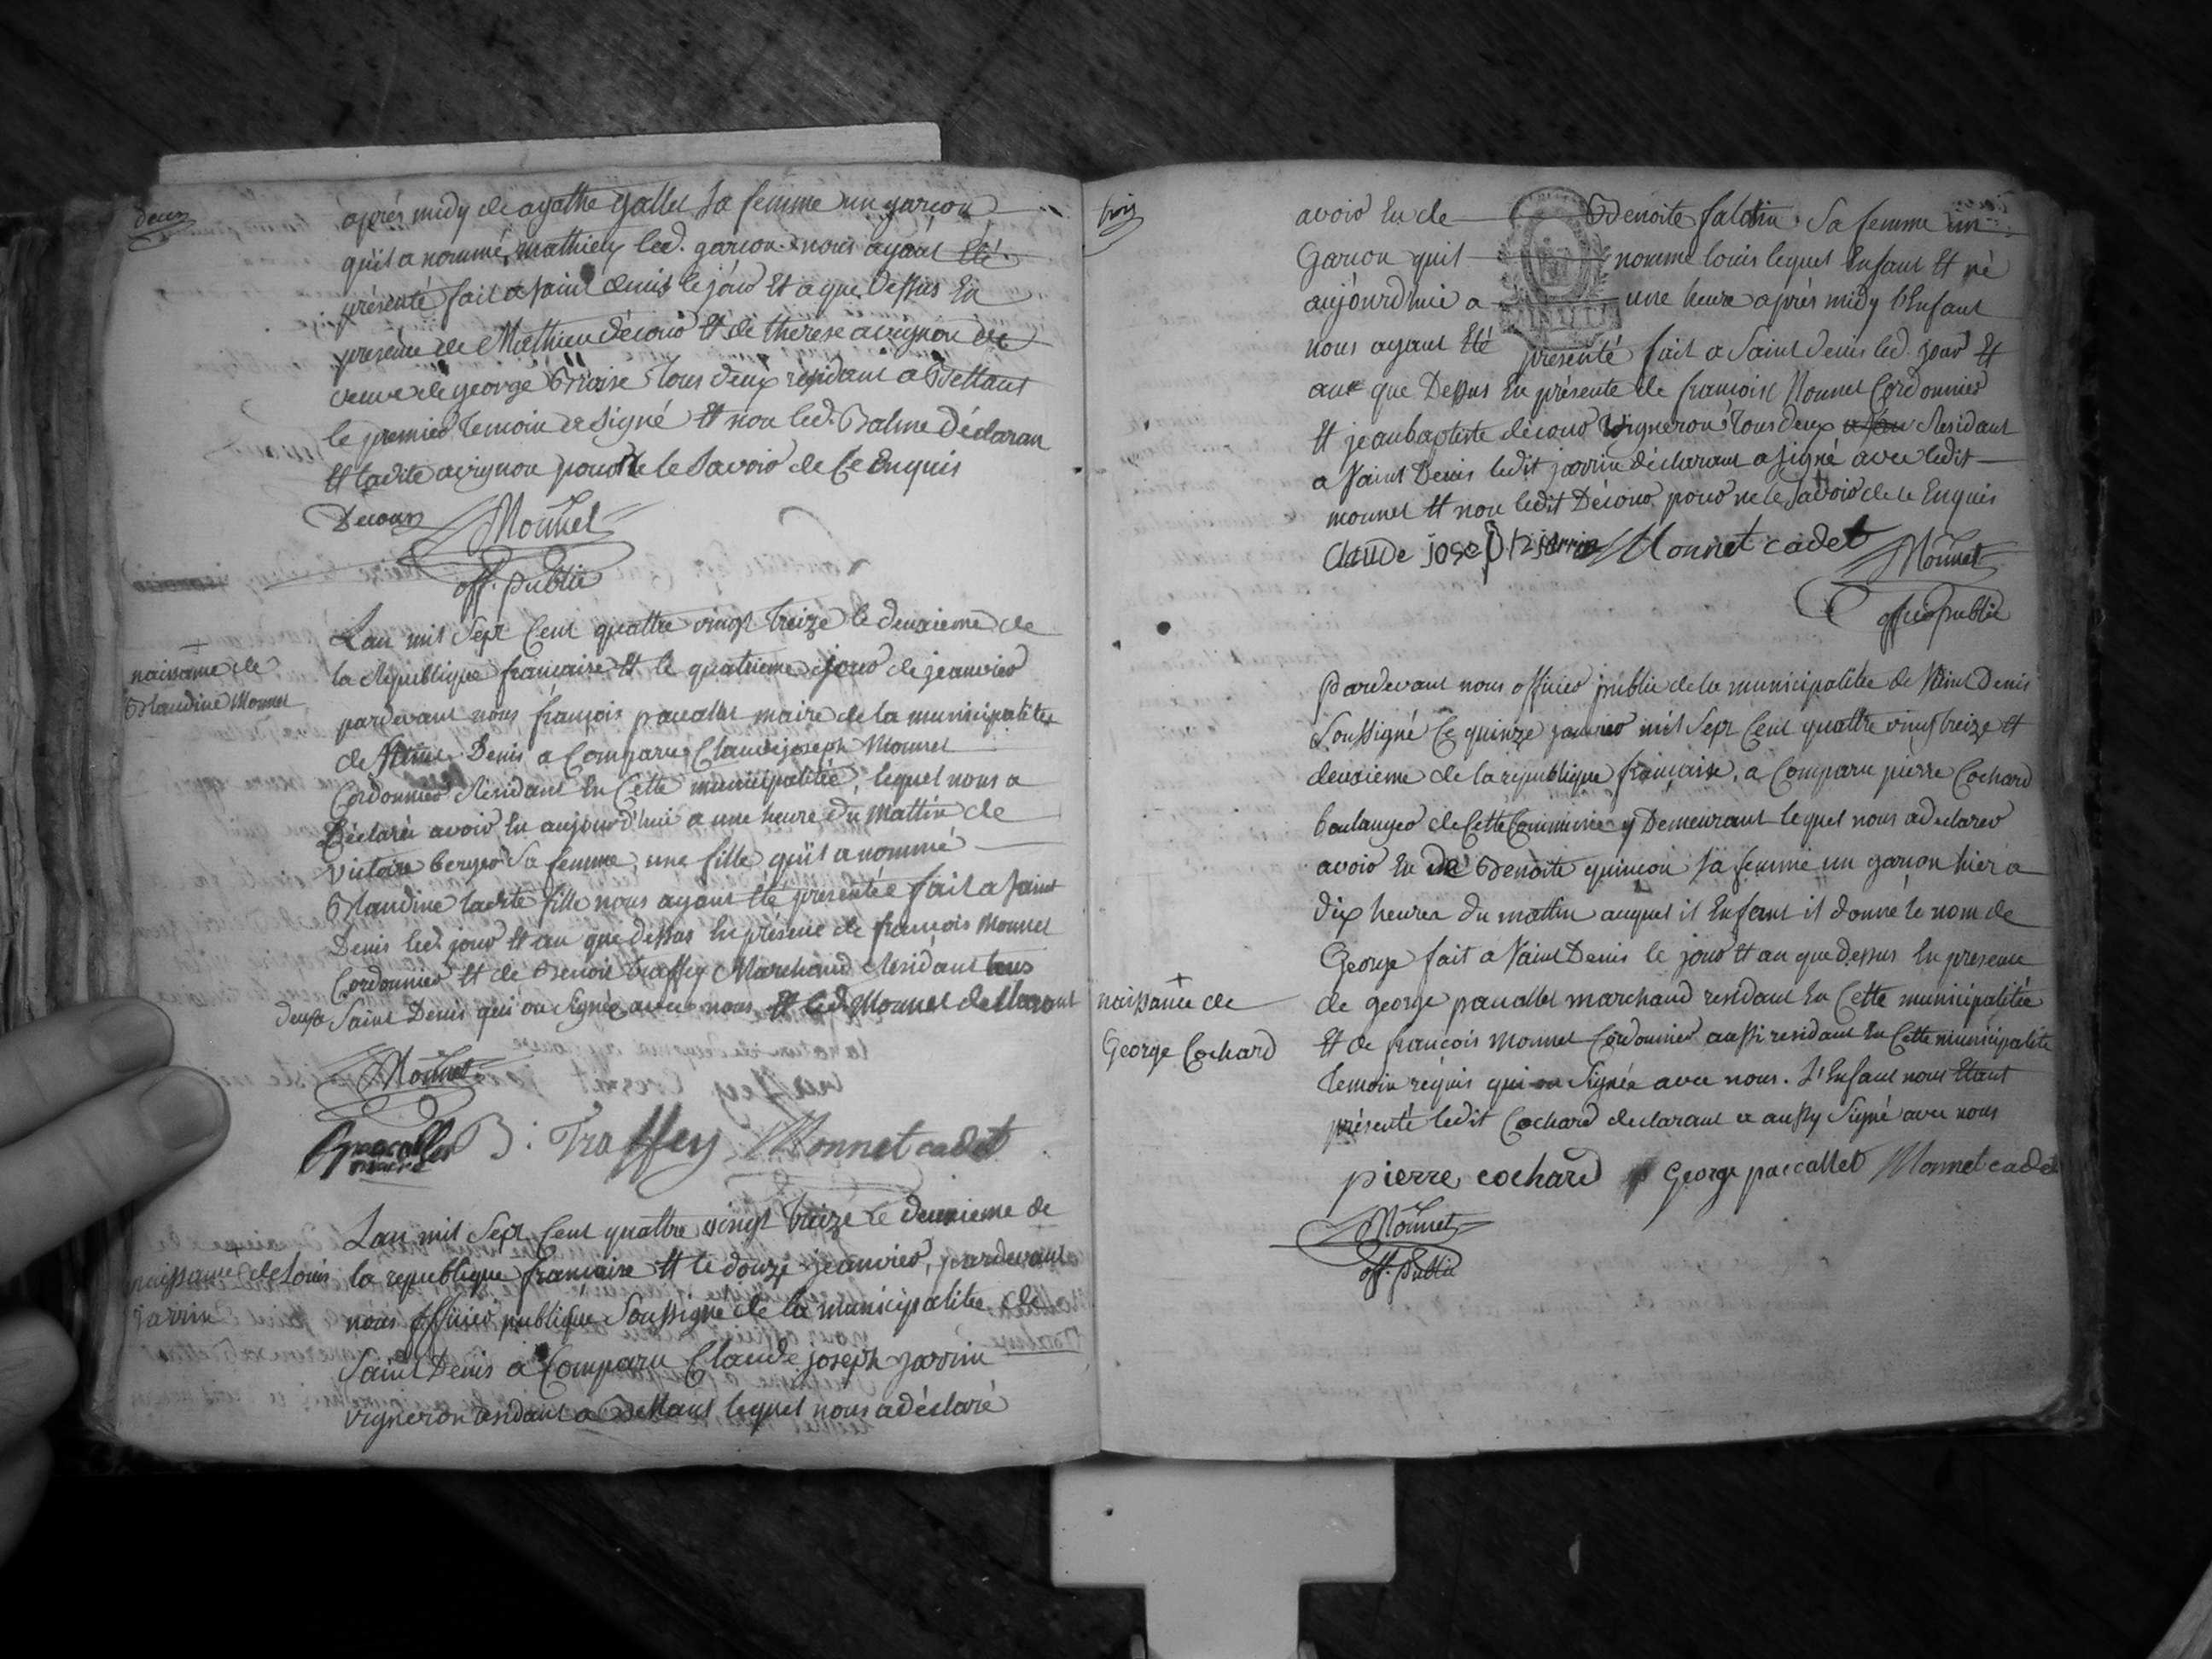 deux
après midy de agathe gallet sa femme un garcon
quil a nommé mathieu led. garcon nous ayant été
présenté fait a saint denis le jour et a que dessus en
presence de Mathieu décour et de therese avignon de
veuve de george Braise tous deux residant a Bettant
le premier temoin a signé et non led. Balme déclaran
et ladite avignon pour ne le savoir de ce enquis
Decour Monnet
off. public
naissance de
Blandine Monnet
Lan mil sept cent quattre vingt treize le deuxieme de
la republique francaise et le quatrieme jour de jeanvier
pardevant nous françois pacallet maire de la municipalitee
de saint Denis a comparu Claude joseph Monnet
Cordonnier residant en cette municipalitée, lequel nous a
Déclaré avoir eu aujourd'hui a une heure du mattin de
victoire berger sa femme, une fille quil a nommé
Blandine ladite fille nous ayant été presentée fait a saint
Denis led. jour et an que dessus en présence de francois Monnet
Cordonnier et de Benoit traffey Marchand residant tous
deux a Saint Denis qui on signée avec nous et led. Monnet declarant
Monnet
pacallet maire B: Traffey Monnet cadet
naissance de Louis
jarrin
Lan mil sept cent quattre vingt treize le deuxieme de
la republique francaise et le douze jeanvier, pardevant
nous officier publique soussigné de la municipalitee de
Saint Denis a comparu Claude joseph jarrin
vigneron residant a Bettant lequel nous a déclaré
trois
avoir eu de Benoite falatin sa femme un
Garcon quil nomme louis lequel enfant et né
aujourdhui a une heure après midy l'enfant
nous ayant été présenté fait a Saint denis led. jour et
an que Dessus en présente de francoix Monnet Cordonnier
et jean baptiste décour vigneron tous deux residant
a Saint Denis ledit jarrin déclarant a signé avec ledit
monnet et non ledit Décour pour ne le savoir de ce enquis
Claude joseph jarrin Monnet cadet
Monnet
officier public
naissance de
George Cochard
Pardevant nous officier public de la municipalitée de saint Denis
soussigné ce quinze janvier mil sept cent quattre vingt treize et
deuxieme de la republique française, a comparu pierre Cochard
boulanger de cette commune y Demeurant lequel nous a declarer
avoir eu de Benoite quincon sa femme un garcon hier a
dix heures du mattin auquel il enfant il donné le nom de
George fait a Saint Denis le jour et an que dessus en presence
de george pacallet marchand residant en cette municipalitée
et de francois monnet Cordonnier aussi residant en cette municipalité
temoin requis qui on signée avec nous. L'enfant nous étant
présenté ledit Cochard declarant a aussy signé avec nous
pierre cochard George paccallet Monnet cadet
Monnet
off. public